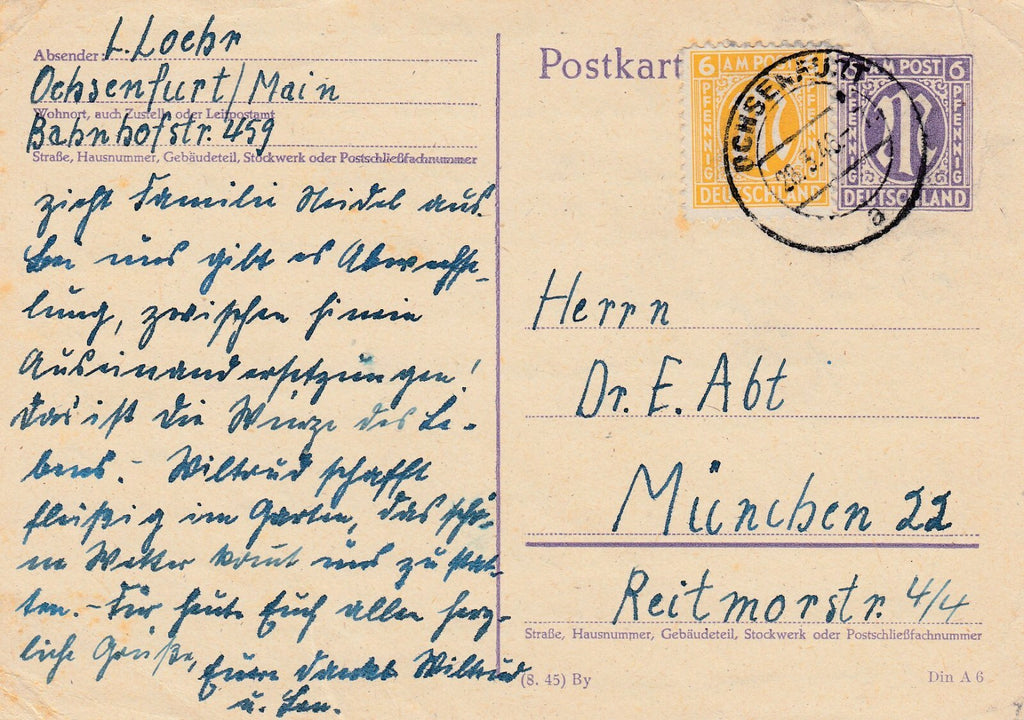 Absender: L. Loehr
Ochsenfurt/Main
Wohnort, auch Zustell- oder Leitpostamt
Bahnhofstr. 459
Straße, Hausnummer, Gebäudeteil, Stockwerk oder Postschließfachnummer
zieht Familie Neidel aus.
Bei uns gibt es Abwechse-
lung, zwischen hinein
Auseinandersetzungen!
Das ist die Würze des Le-
bens. - Wiltrud schafft
fleißig im Garten, das schö-
ne Wetter komt uns zu stat-
ten. - Für heute Euch allen herz-
liche Grüße, Eure Wiltrud
u.
Postkart
6 AM POST
PFENNIG PFENNIG
DEUTSCHLAND
6 AM POST 6
PFENNIG PFENNIG
DEUTSCHLAND
OCHSENFURT
a
Herrn
Dr. E. Abt
München 22
Reitmorstr. 4/4
Straße, Hausnummer, Gebäudeteil, Stockwerk oder Postschließfachnummer
(8. 45) By
Din A 6